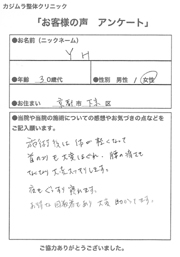 カジムラ整体クリニック
「お客様の声 アンケート」
●お名前(ニックネーム)
YH
●年齢 30歳代 ●性別 男性 女性
●お住まい 京都市 下京 区
●当院や当院の施術についての感想やお気づきの点などをご記入願います。
施術後は体が軽くなって
首のコリも大変ほぐれ、腰の痛みも
なくなり大変スッキリします。
夜もぐっすり眠れます。
大変
ご協力ありがとうございました。